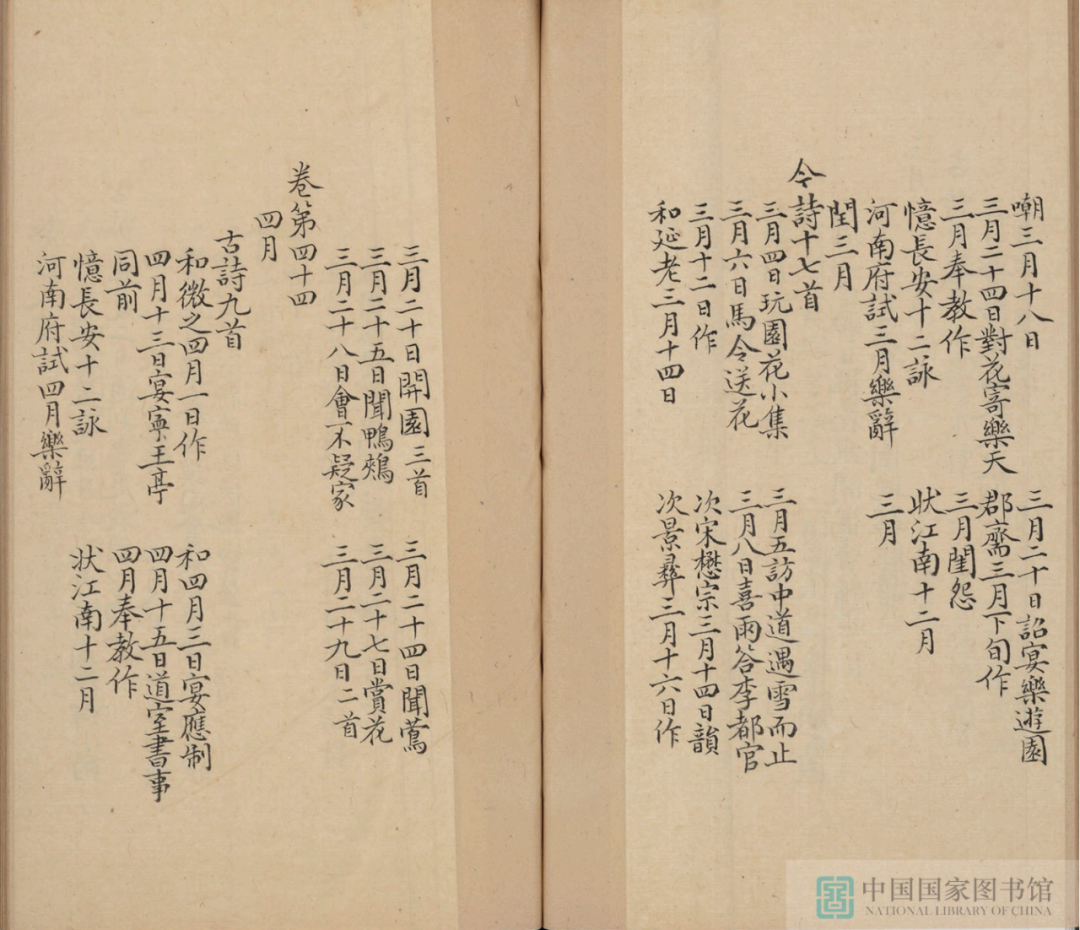 嘲三月十八日 三月二十日詔宴樂遊園
三月二十四日對花寄樂天 郡齋三月下旬作
三月奉教作 三月閨怨
憶長安十二詠 狀江南十二月
河南府試三月樂辭 三月
閏三月
今詩十七首
三月四日玩園花小集 三月五訪中道遇雪而止
三月六日馬令送花 三月八日喜雨答李都官
三月十二日作 次宋懋宗三月十四日韻
和延老三月十四日 次景彝三月十六日作
三月二十日開園三首 三月二十四日聞鶯
三月二十五日聞鴨鵊 三月二十七日賞花
三月二十八日會不疑家 三月二十九日二首
卷第四十四
四月
古詩九首
和微之四月一日作 和四月三日宴應制
四月十三日宴寧王亭 四月十五日道室書事
同前 四月奉教作
憶長安十二詠 狀江南十二月
河南府試四月樂辭
中国国家图书馆
NATIONAL LIBRARY OF CHINA